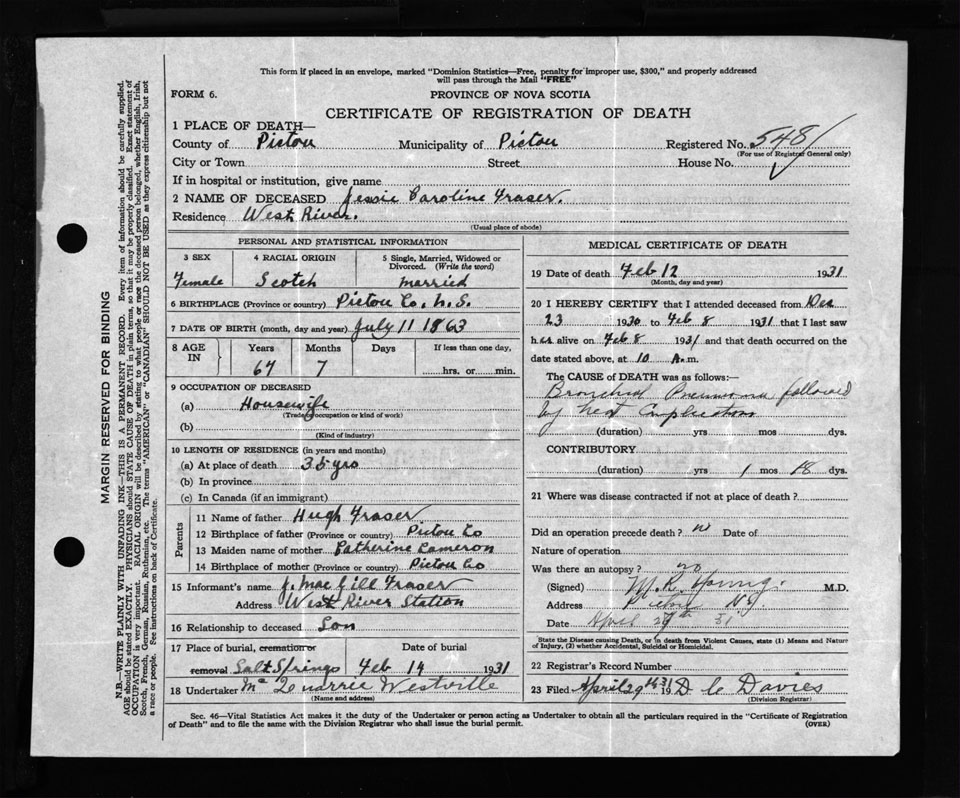 This form if placed in an envelope, marked "Dominion Statistics—Free, penalty for improper use, $300," and properly addressed
will pass through the Mail "FREE"
FORM 6.
PROVINCE OF NOVA SCOTIA
CERTIFICATE OF REGISTRATION OF DEATH
1 PLACE OF DEATH—
County of Pictou Municipality of Pictou Registered No. 548
(For use of Registrar General only)
City or Town Street House No.
If in hospital or institution, give name
2 NAME OF DECEASED Jessie Caroline Fraser.
Residence West River.
(Usual place of abode)
PERSONAL AND STATISTICAL INFORMATION
3 SEX 4 RACIAL ORIGIN 5 Single, Married, Widowed or
Divorced. (Write the word)
Female Scotch married
6 BIRTHPLACE (Province or country) Pictou Co. N.S.
7 DATE OF BIRTH (month, day and year) July 11 1863
8 AGE IN Years Months Days If less than one day,
67 7 hrs. or min.
9 OCCUPATION OF DECEASED
(a) Housewife
(Trade or occupation or kind of work)
(b)
(Kind of industry)
10 LENGTH OF RESIDENCE (in years and months)
(a) At place of death 35 yrs
(b) In province
(c) In Canada (if an immigrant)
Parents
11 Name of father Hugh Fraser
12 Birthplace of father (Province or country) Pictou Co
13 Maiden name of mother Catherine Cameron
14 Birthplace of mother (Province or country) Pictou Co
15 Informant's name J. MacGill Fraser
Address West River Station
16 Relationship to deceased Son
17 Place of burial, cremation or Date of burial
removal Salt Springs Feb 14 1931
18 Undertaker Westville
(Name and address)
MEDICAL CERTIFICATE OF DEATH
19 Date of death Feb 12 1931
(Month, day and year)
20 I HEREBY CERTIFY that I attended deceased from Dec
23 1930 to Feb 8 1931 that I last saw
her alive on Feb 8 1931 and that death occurred on the
date stated above, at 10 A.m.
The CAUSE OF DEATH was as follows:
Bronchial Pneumonia followed
by heart Complications
(duration) yrs mos dys.
CONTRIBUTORY
(duration) yrs 1 mos 18 dys.
21 Where was disease contracted if not at place of death ?
Did an operation precede death ? no Date of
Nature of operation
Was there an autopsy ? no
(Signed) M. R. Young. M.D.
Address Pictou N.S.
Date April 29th 31
State the Disease causing Death, or in death from Violent Causes, state (1) Means and Nature
of Injury, (2) whether Accidental, Suicidal or Homicidal.
22 Registrar's Record Number
23 Filed April 29th 1931 D. C. Davies
(Division Registrar)
Sec. 46—Vital Statistics Act makes it the duty of the Undertaker or person acting as Undertaker to obtain all the particulars required in the "Certificate of Registration
of Death" and to file the same with the Division Registrar who shall issue the burial permit.
(OVER)
MARGIN RESERVED FOR BINDING
N.B.—WRITE PLAINLY WITH UNFADING INK—THIS IS A PERMANENT RECORD. Every item of information should be carefully supplied.
AGE should be stated EXACTLY. PHYSICIANS should STATE CAUSE OF DEATH in plain terms, so that it may be properly classified. Exact statement of
OCCUPATION is very important. RACIAL ORIGIN will be described by stating to what people or race the deceased person belonged, whether English, Irish,
Scotch, French, German, Russian, Ruthenian, etc. The terms "AMERICAN" or "CANADIAN" SHOULD NOT BE USED as they express citizenship but not
a race or people. See instructions on back of Certificate.